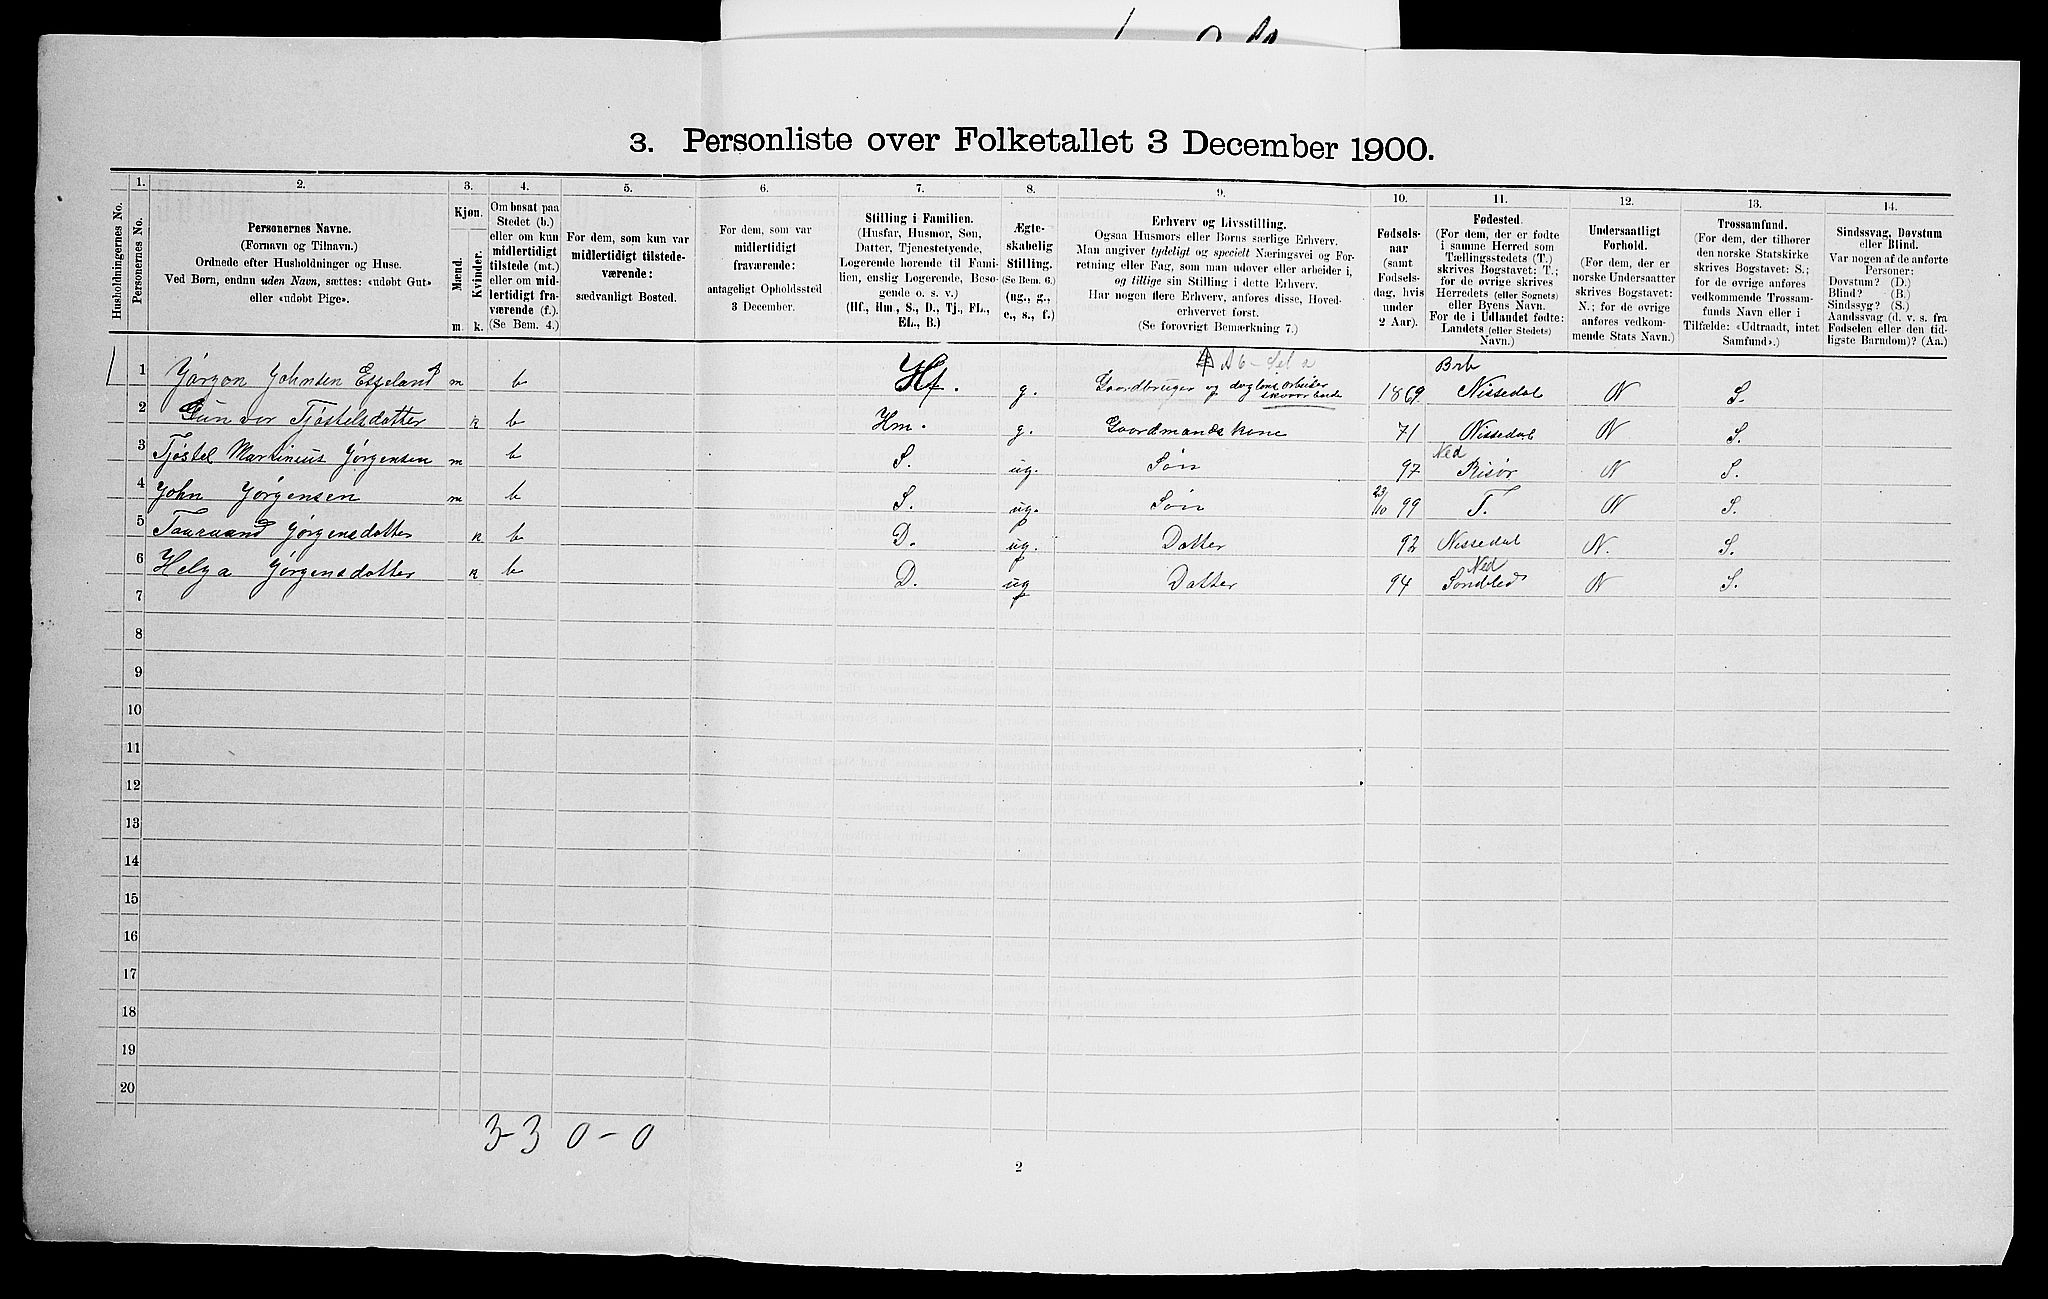 3. Personliste over Folketallet 3 December 1900.
1. 2. 3. 4. 5. 6. 7. 8. 9. 10. 11. 12. 13. 14.
Husholdningernes No.
Personernes No.
Personernes Navne.
(Fornavn og Tilnavn.)
Ordnede efter Husholdninger og Huse.
Ved Børn, endnu uden Navn, sættes: «udøbt Gut»
eller «udøbt Pige».
Kjøn.
Mænd.
Kvinder.
m. k.
Om bosat paa
Stedet (b.)
eller om kun
midlertidigt
tilstede (mt.)
eller om mid-
lertidigt fra-
værende (f.).
(Se Bem. 4.)
For dem, som kun var
midlertidigt tilstede-
værende:
sædvanligt Bosted.
For dem, som var
midlertidigt
fraværende:
antageligt Opholdssted
3 December.
Stilling i Familien.
(Husfar, Husmor, Søn,
Datter, Tjenestetyende,
Logerende hørende til Fami-
lien, enslig Logerende, Besø-
gende o. s. v.)
(Hf., Hm., S., D., Tj., FL.,
EL., B.)
Ægte-
skabelig
Stilling.
(Se Bem. 6.)
(ug., g.,
e., s., f.)
Erhverv og Livsstilling.
Ogsaa Husmors eller Børns særlige Erhverv.
Man angiver tydeligt og specielt Næringsvei og For-
retning eller Fag, som man udøver eller arbeider i,
og tillige sin Stilling i dette Erhverv.
Har nogen flere Erhverv, anføres disse, Hoved-
erhvervet først.
(Se forøvrigt Bemærkning 7.)
Fødsels-
aar
(samt
Fødsels-
dag, hvis
under
2 Aar).
Fødested.
(For dem, der er fødte
i samme Herred som
Tællingsstedets (T.)
skrives Bogstavet: T.;
for de øvrige skrives
Herredets (eller Sognets)
eller Byens Navn.
For de i Udlandet fødte:
Landets (eller Stedets)
Navn.)
Undersaatligt
Forhold.
(For dem, der er
norske Undersaatter
skrives Bogstavet:
N.; for de øvrige
anføres vedkom-
mende Stats Navn.)
Trossamfund.
(For dem, der tilhører
den norske Statskirke
skrives Bogstavet: S.;
for de øvrige anføres
vedkommende Trossam-
funds Navn eller i
Tilfælde: «Udtraadt, intet
Samfund».)
Sindssvag, Døvstum
eller Blind.
Var nogen af de anførte
Personer:
Døvstum? (D.)
Blind? (B.)
Sindssyg? (S.)
Aandssvag (d. v. s. fra
Fødselen eller den tid-
ligste Barndom)? (Aa.)
1 Jørgen Johnsen Esseland m b Hf. g. Gaardbruger og daglønsarbeider 1869. Nissedal N S.
2 Gunvor Tjøstelsdatter k b Hm. g. Gaardmandskone 71 Nissedal N S.
3 Tjøstel Martinius Jørgensen m b S. ug. Søn 97 Ned Risør N S.
4 John Jørgensen m b S. ug. Søn 23/10 99 T. N S.
5 Jørgensdatter k b D. ug. Datter 92 Nissedal N. S.
6 Helga Jørgensdatter k b D. ug Datter 94 Ned Sondled N S.
7
8
9
10
11
12
13
14
15
16
17
18
19
20
3-3 0-0
2